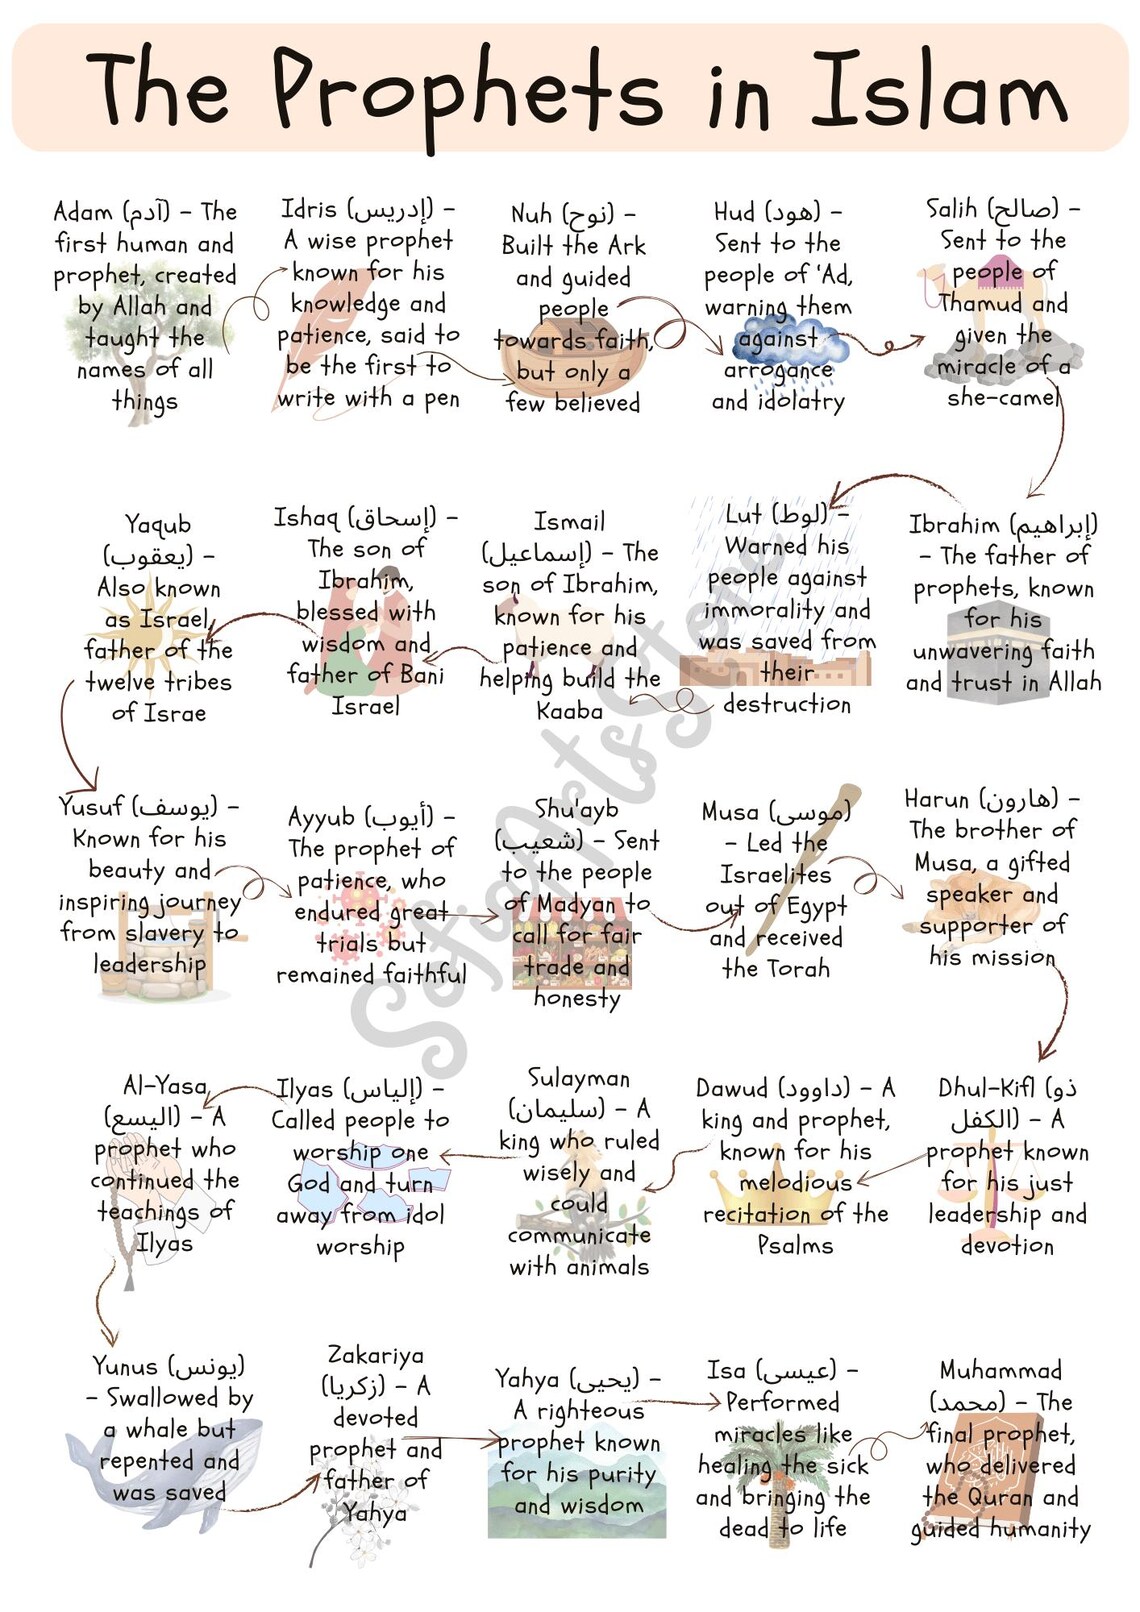 The Prophets in Islam
Adam (آدم) – The
first human and
prophet, created
by Allah and
taught the
names of all
things
Idris (إدريس) –
A wise prophet
known for his
knowledge and
patience, said to
be the first to
write with a pen
Nuh (نوح) –
Built the Ark
and guided
people
towards faith,
but only a
few believed
Hud (هود) –
Sent to the
people of 'Ad,
warning them
against
arrogance
and idolatry
Salih (صالح) –
Sent to the
people of
Thamud and
given the
miracle of a
she-camel
Ibrahim (إبراهيم)
– The father of
prophets, known
for his
unwavering faith
and trust in Allah
Lut (لوط) –
Warned his
people against
immorality and
was saved from
their
destruction
Ismail
(إسماعيل) – The
son of Ibrahim,
known for his
patience and
helping build the
Kaaba
Ishaq (إسحاق) –
The son of
Ibrahim,
blessed with
wisdom and
father of Bani
Israel
Yaqub
(يعقوب) –
Also known
as Israel,
father of the
twelve tribes
of Israe
Yusuf (يوسف) –
Known for his
beauty and
inspiring journey
from slavery to
leadership
Ayyub (أيوب) –
The prophet of
patience, who
endured great
trials but
remained faithful
Shu'ayb
(شعيب) – Sent
to the people
of Madyan to
call for fair
trade and
honesty
Musa (موسى)
– Led the
Israelites
out of Egypt
and received
the Torah
Harun (هارون) –
The brother of
Musa, a gifted
speaker and
supporter of
his mission
Dhul-Kifl (ذو
الكفل) – A
prophet known
for his just
leadership and
devotion
Dawud (داوود) – A
king and prophet,
known for his
melodious
recitation of the
Psalms
Sulayman
(سليمان) – A
king who ruled
wisely and
could
communicate
with animals
Ilyas (إلياس) –
Called people to
worship one
God and turn
away from idol
worship
Al-Yasa
(اليسع) – A
prophet who
continued the
teachings of
Ilyas
Yunus (يونس)
– Swallowed by
a whale but
repented and
was saved
Zakariya
(زكريا) – A
devoted
prophet and
father of
Yahya
Yahya (يحيى) –
A righteous
prophet known
for his purity
and wisdom
Isa (عيسى) –
Performed
miracles like
healing the sick
and bringing the
dead to life
Muhammad
(محمد) – The
final prophet,
who delivered
the Quran and
guided humanity
SofioArtsStore